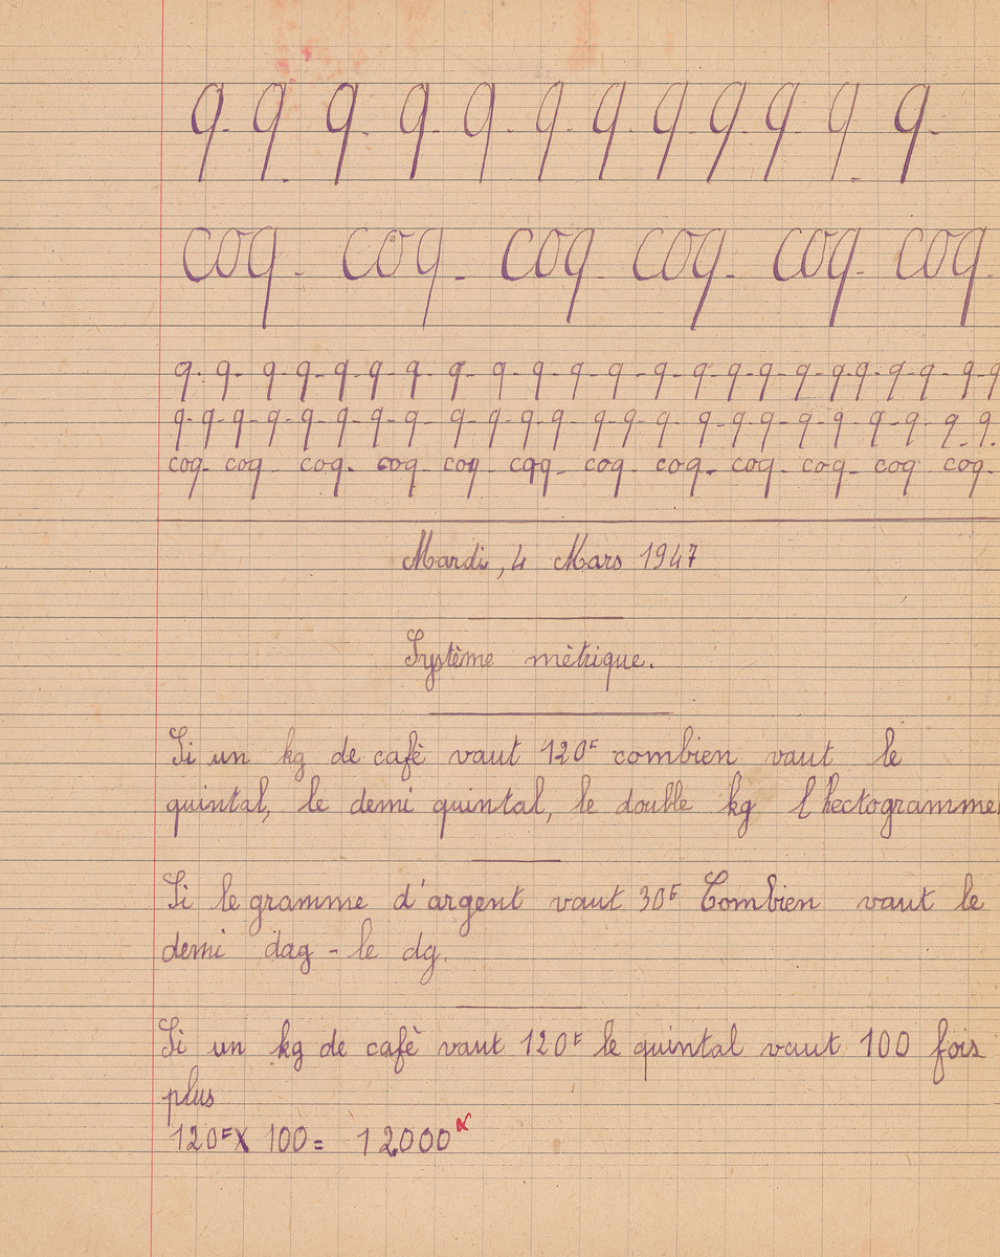 q. q. q. q. q. q. q. q. q. q. q. q.
coq. coq. coq. coq. coq. coq.
q. q- q- q- q- q- q- q- q- q- q- q- q- q- q- q- q- q- q- q- q- q-q
q-q-q-q-q-q-q-q-q-q-q-q-q-q-q-q-q-q-q-q-q-q-q.q.
coq- coq coq. coq- coq- coq- coq- coq- coq- coq- coq coq.
Mardi, 4 Mars 1947
Système mètrique.
Si un kg de cafè vaut 120F combien vaut le
quintal, le demi quintal, le double kg l'hectogramme
Si le gramme d'argent vaut 30F Combien vaut le
demi dag - le dg.
Si un kg de cafè vaut 120F le quintal vaut 100 fois
plus
120F X 100 = 12000